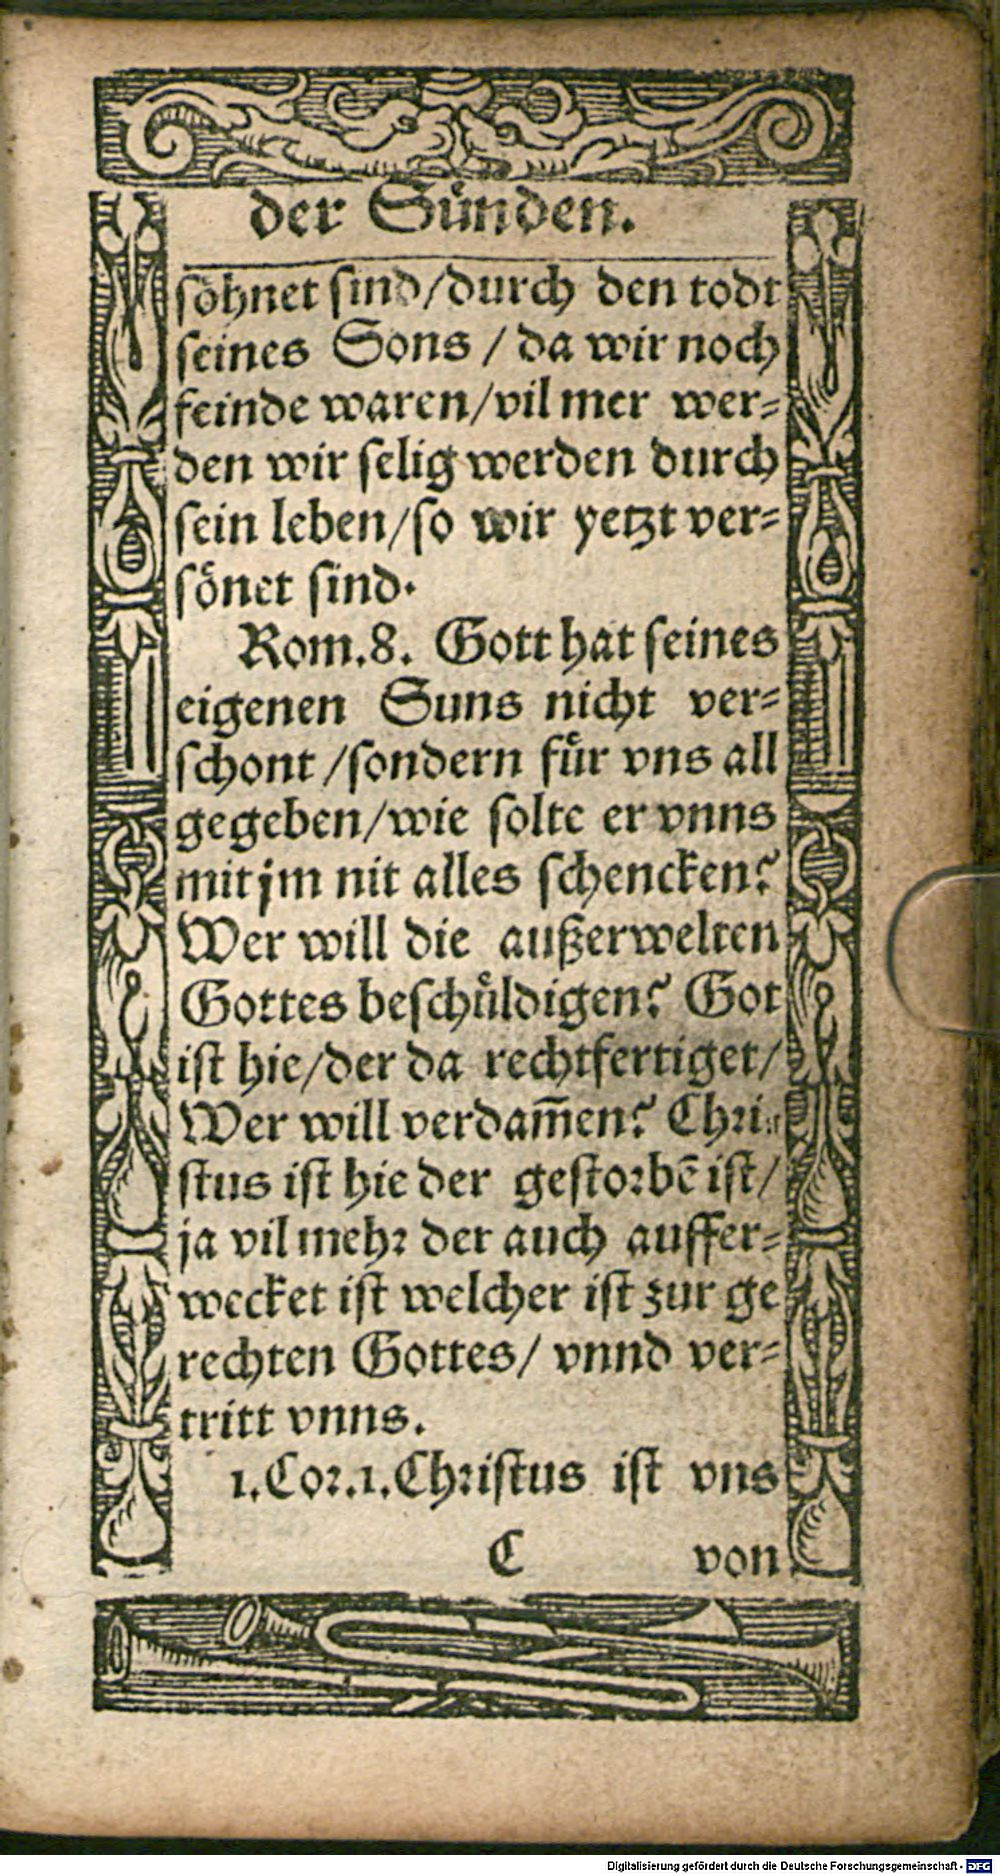 der Sünden.
söhnet sind/durch den todt
seines Sons / da wir noch
feinde waren/vil mer wer-
den wir selig werden durch
sein leben/so wir yetzt ver-
sönet sind.
Rom.8. Gott hat seines
eigenen Suns nicht ver-
schont /sondern für vns all
gegeben/wie solte er vnns
mit jm nit alles schencken?
Wer will die außerwelten
Gottes beschüldigen? Got
ist hie/der da rechtfertiget/
Wer will verdam̄en? Chri-
stus ist hie der gestorbē ist/
ja vil mehr der auch auffer-
wecket ist welcher ist zur ge
rechten Gottes/ vnnd ver-
tritt vnns.
1.Cor.1.Christus ist vns
C von
Digitalisierung gefördert durch die Deutsche Forschungsgemeinschaft - DFG